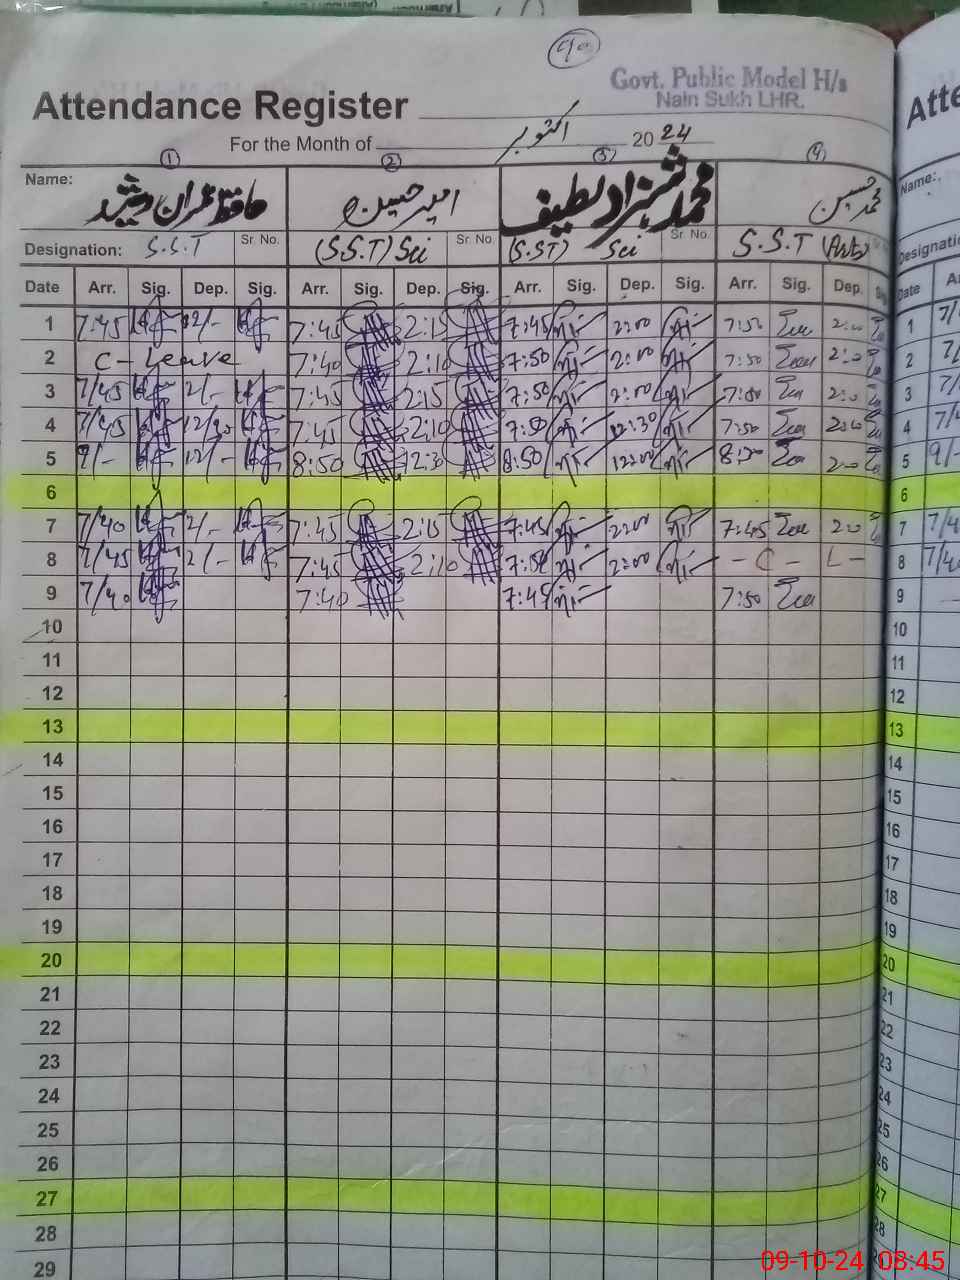 Govt. Public Model H/s
Nain Sukh LHR.
Attendance Register
For the Month of اکتوبر 2024
1 2 3 4
Name: حافظ عمران رشید امیر حسین محمد شہزاد لطیف محمد حسین
Designation: S.S.T Sr. No. (S.S.T) Sci Sr. No. (S.ST) Sci Sr. No. S.S.T (Arts) Sr. No.
Date Arr. Sig. Dep. Sig. Arr. Sig. Dep. Sig. Arr. Sig. Dep. Sig. Arr. Sig. Dep. Sig.
1 7:45 7:45 2:15 7:45 2:00 7:50 2:00
2 C - Leave 7:40 2:10 7:50 2:00 7:50 2:0
3 7/45 2/- 7:45 2:15 7:50 2:00 7:50 2:0
4 7/45 12/30 7:45 2:10 7:50 12:30 7:50 2:00
5 9/- 12/- 8:50 12:30 8:50 12:00 8:50 2:00
6
7 7/40 2/- 7:45 2:15 7:45 2:00 7:45 2:0
8 7/45 2/- 7:45 2:10 7:50 2:00 - C - L -
9 7/40 7:40 7:45 7:50
10
11
12
13
14
15
16
17
18
19
20
21
22
23
24
25
26
27
28
29
Atte
Name:
Designati
Date
1
2
3
4
5 9/-
6
7
8
9
10
11
12
13
14
15
16
17
18
19
20
21
22
23
24
25
26
27
28
09-10-24 08:45